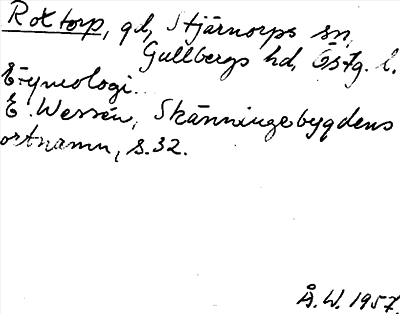 Roxtorp, gd, Stjärnorps sn,
Gullbergs hd, Östg. l.
Etymologi.
E. Wessén, Skänningebygdens
ortnamn, s. 32.
Å. W. 1957.